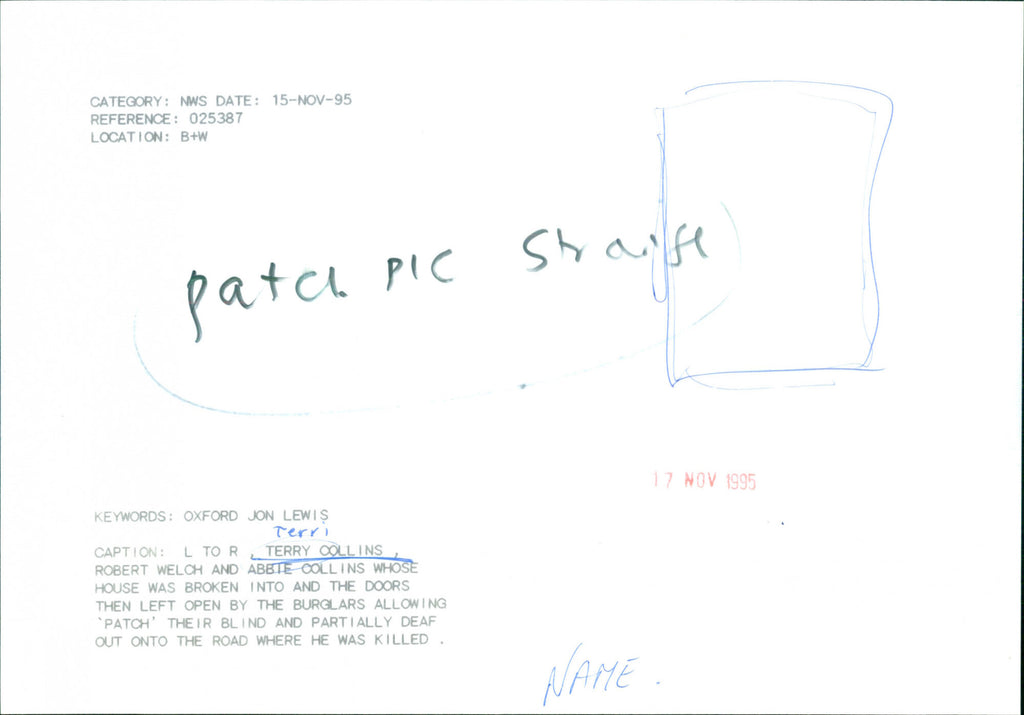 CATEGORY: NWS DATE: 15-NOV-95
REFERENCE: 025387
LOCATION: B+W
patch PIC
17 NOV 1995
KEYWORDS: OXFORD JON LEWIS
Terri
CAPTION: L TO R , TERRY COLLINS ,
ROBERT WELCH AND ABBIE COLLINS WHOSE
HOUSE WAS BROKEN INTO AND THE DOORS
THEN LEFT OPEN BY THE BURGLARS ALLOWING
`PATCH' THEIR BLIND AND PARTIALLY DEAF
OUT ONTO THE ROAD WHERE HE WAS KILLED .
NAME.